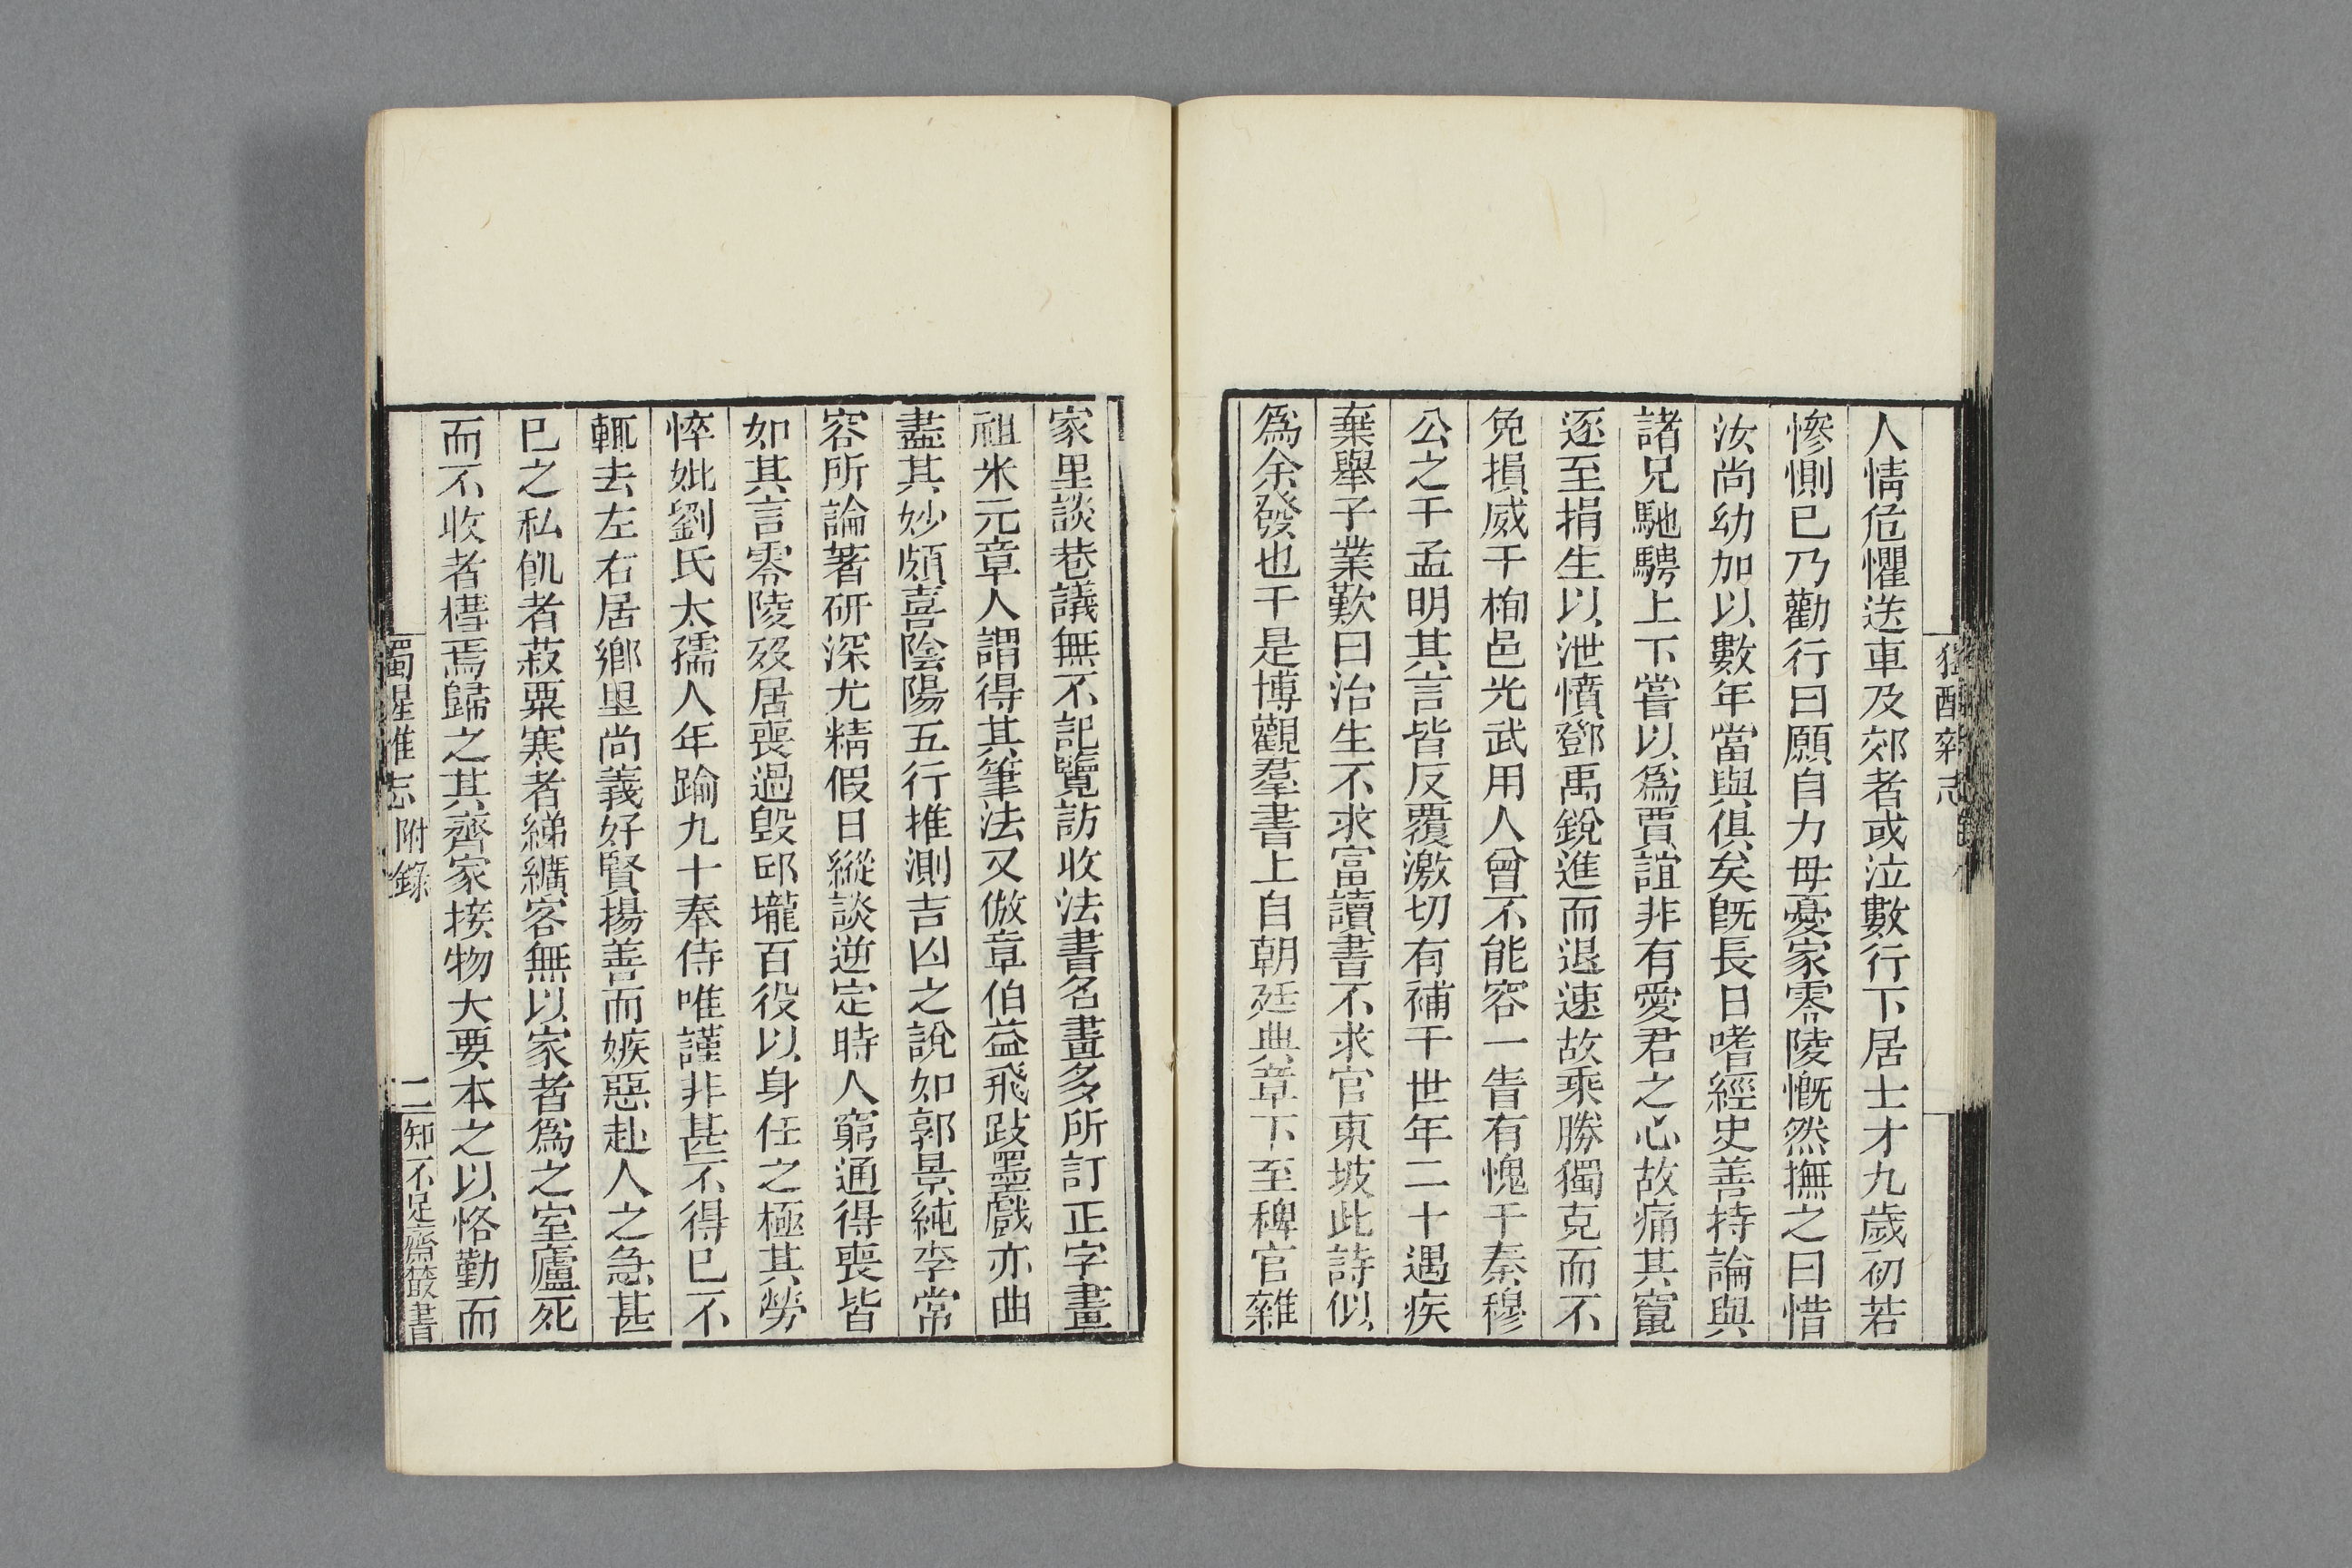 人情危懼送車及郊者或泣數行下居士才九歲初若
慘惻已乃勸行曰願自力毋憂家零陵慨然撫之曰惜
汝尚幼加以數年當與俱矣旣長日嗜經史善持論與
諸兄馳騁上下嘗以爲賈誼非有愛君之心故痛其竄
逐至捐生以泄憤鄧禹銳進而退速故乘勝獨克而不
免損威于栒邑光武用人曾不能容一眚有愧于秦穆
公之于孟明其言皆反覆激切有補于世年二十遇疾
棄舉子業歎曰治生不求富讀書不求官東坡此詩似
爲余發也于是博觀羣書上自朝廷典章下至稗官雜
家里談巷議無不記覽訪收法書名畫多所訂正字畫
祖米元章人謂得其筆法又倣章伯益飛跂墨戲亦曲
盡其妙頗喜陰陽五行推測吉凶之說如郭景純李常
容所論著研深尤精假日縱談逆定時人窮通得喪皆
如其言零陵歿居喪過毀邱壠百役以身任之極其勞
悴妣劉氏太孺人年踰九十奉侍唯謹非甚不得已不
輒去左右居鄉里尚義好賢揚善而嫉惡赴人之急甚
已之私飢者菽粟寒者綈纊客無以家者爲之室廬死
而不收者槥焉歸之其齊家接物大要本之以恪勤而
獨醒雜志 附錄
二
知不足齋叢書